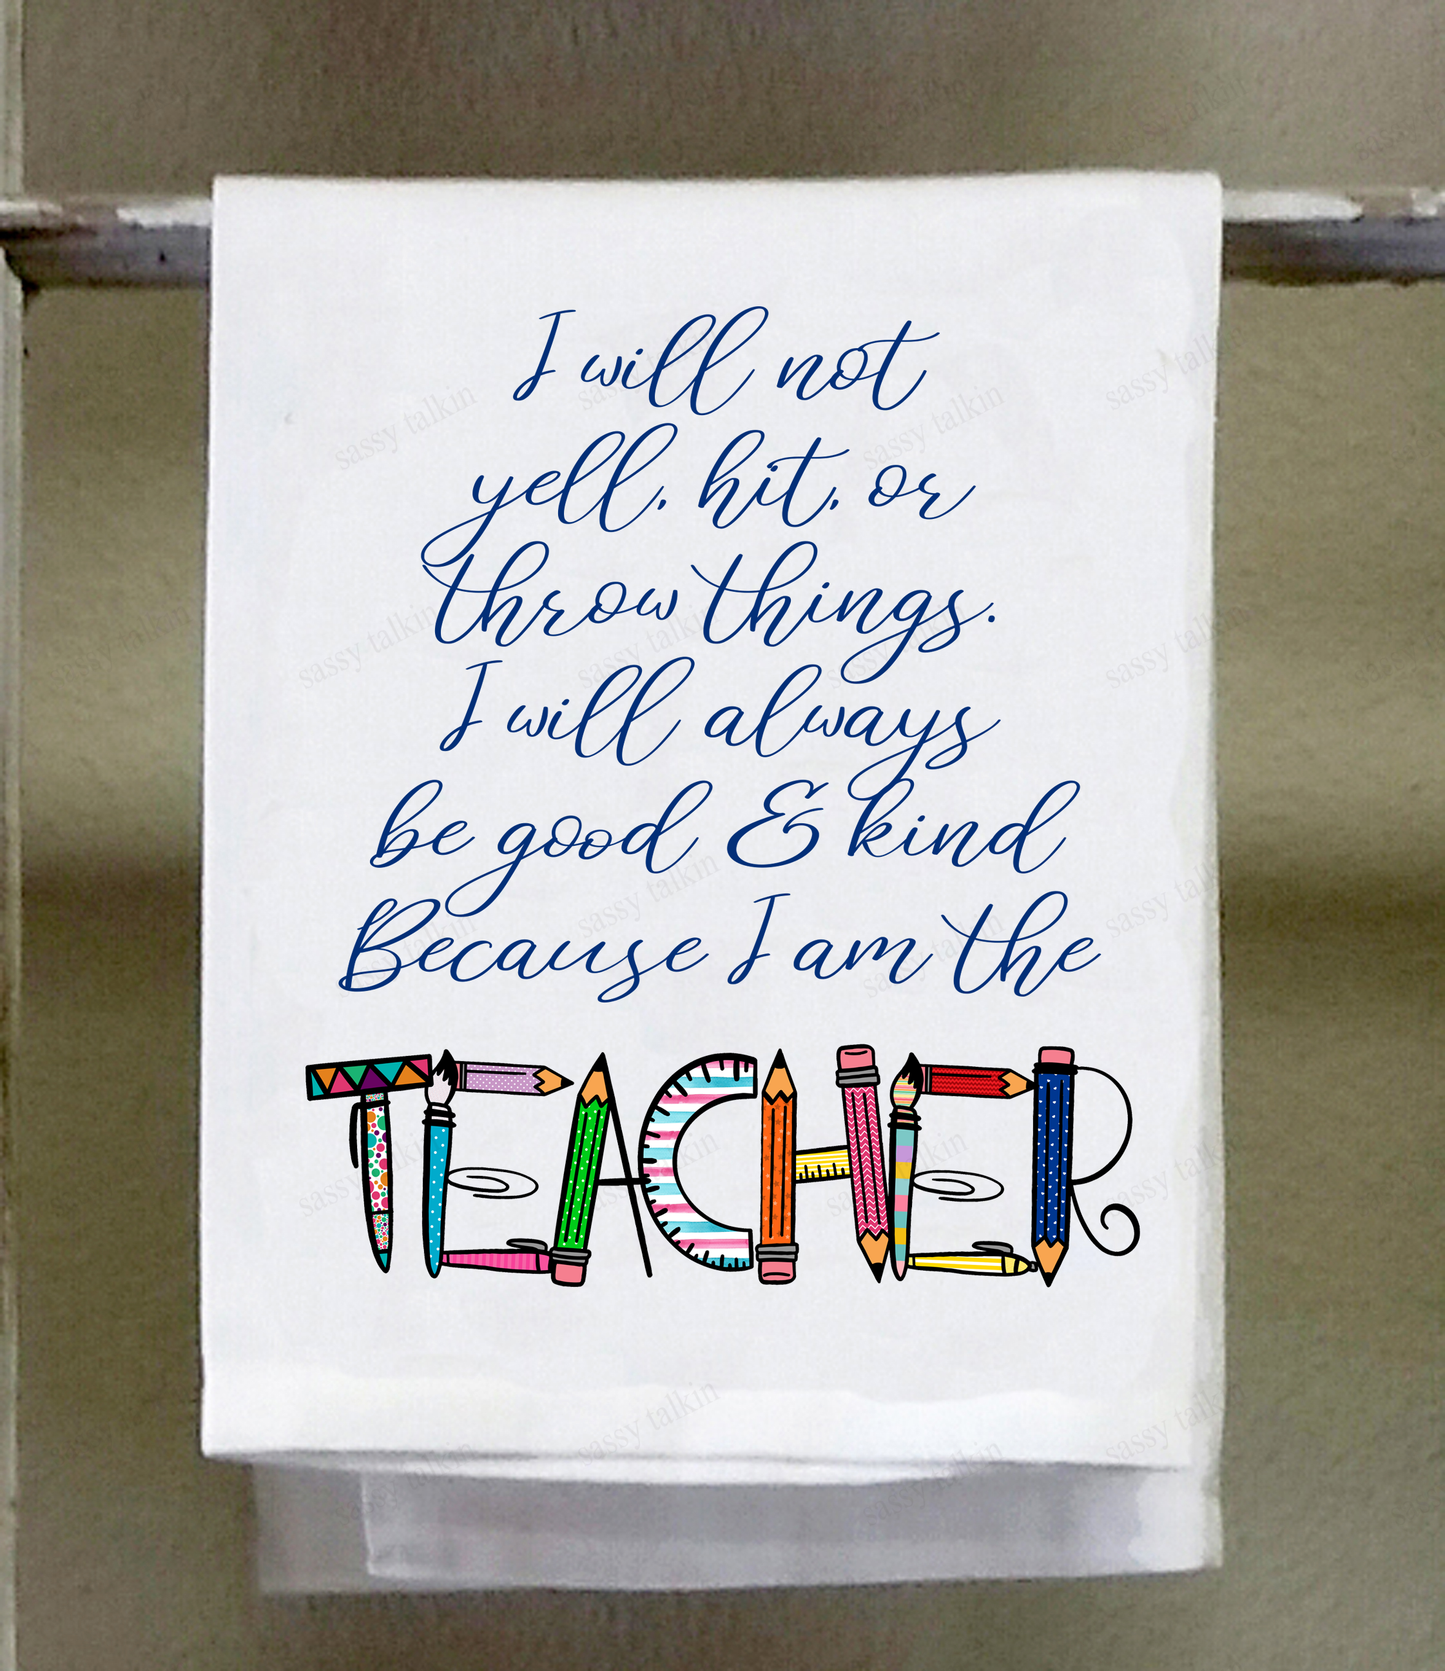 I will not
yell, hit, or
throw things.
I will always
be good & kind
Because I am the
TEACHER
sassy talkin